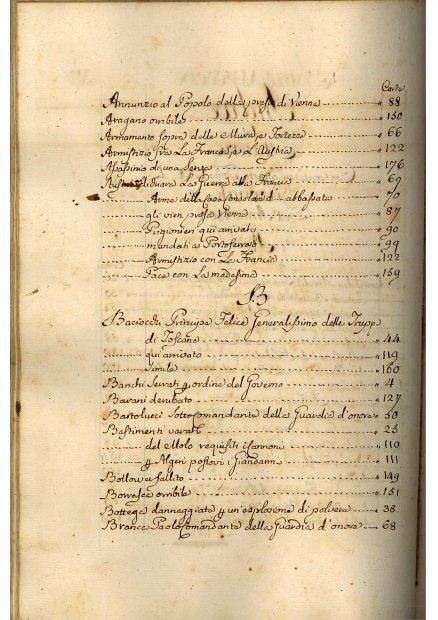 Carta
Annunzio al Popolo della presa di Vienna " 88
Aragano orribile " 150
Armamento sopra delle Mura, e Fortezze " 66
Armistizio fra La Francia, e L'Austria " 122
Assassinio di una Serva " 176
Austria dichiara La Guerra alla Francia " 69
Arme della sopra consolare abbassate " 70
gli vien presa Vienna " 87
Prigionieri qui arrivati " 90
mandati a Portoferrajo " 99
Armistizio con La Francia " 122
Pace con La medesima " 159
B
Baciocchi Principe Felice Generalissimo delle Truppe
di Toscana " 44
qui arrivato " 119
simile " 160
Banchi serrati p ordine del Governo " 4
Barani derubato " 127
Bartolucci Sottocomandante della Guardia d'onore " 50
Bastimenti varati " 25
del Molo requisiti i cannoni " 110
p Algeri postovi i Giandarmi " 111
fallito " 149
Borrasca orribile " 151
Botteghe danneggiate p un'esplosione di polvere " 38
Branca Paolo Comandante della Guardia d'onore " 68